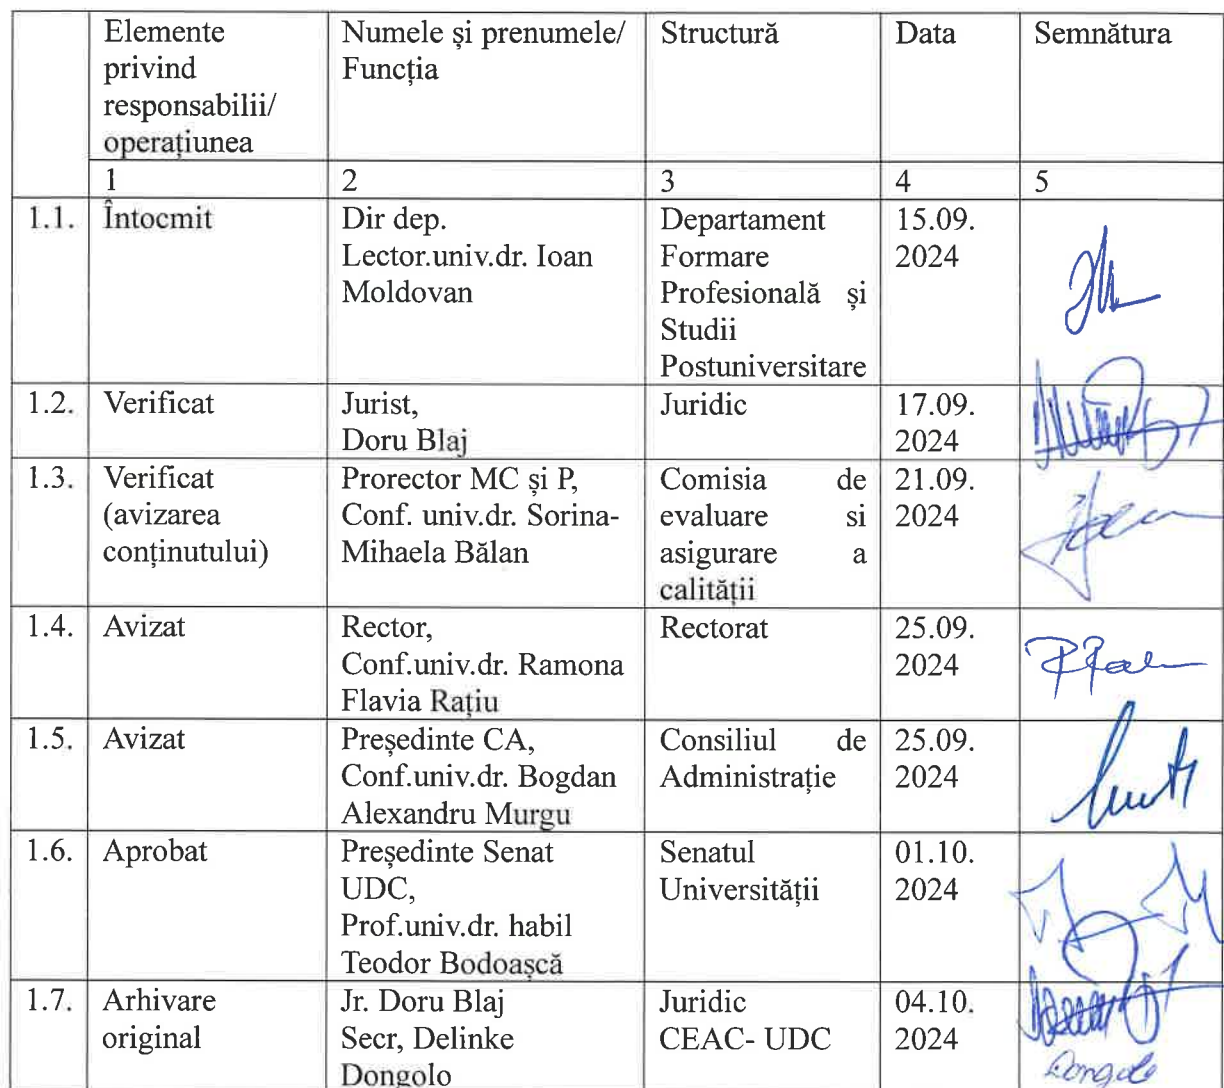 Elemente privind responsabilii/ operațiunea
Numele și prenumele/ Funcția
Structură
Data
Semnătura
1
2
3
4
5
1.1.
Întocmit
Dir dep.
Lector.univ.dr. Ioan
Moldovan
Departament
Formare
Profesională și
Studii
Postuniversitare
15.09.
2024
1.2.
Verificat
Jurist,
Doru Blaj
Juridic
17.09.
2024
1.3.
Verificat
(avizarea
conținutului)
Prorector MC și P,
Conf. univ.dr. Sorina-
Mihaela Bălan
Comisia de
evaluare si
asigurare a
calității
21.09.
2024
1.4.
Avizat
Rector,
Conf.univ.dr. Ramona
Flavia Rațiu
Rectorat
25.09.
2024
1.5.
Avizat
Președinte CA,
Conf.univ.dr. Bogdan
Alexandru Murgu
Consiliul de
Administrație
25.09.
2024
1.6.
Aprobat
Președinte Senat
UDC,
Prof.univ.dr. habil
Teodor Bodoașcă
Senatul
Universității
01.10.
2024
1.7.
Arhivare
original
Jr. Doru Blaj
Secr, Delinke
Dongolo
Juridic
CEAC- UDC
04.10.
2024